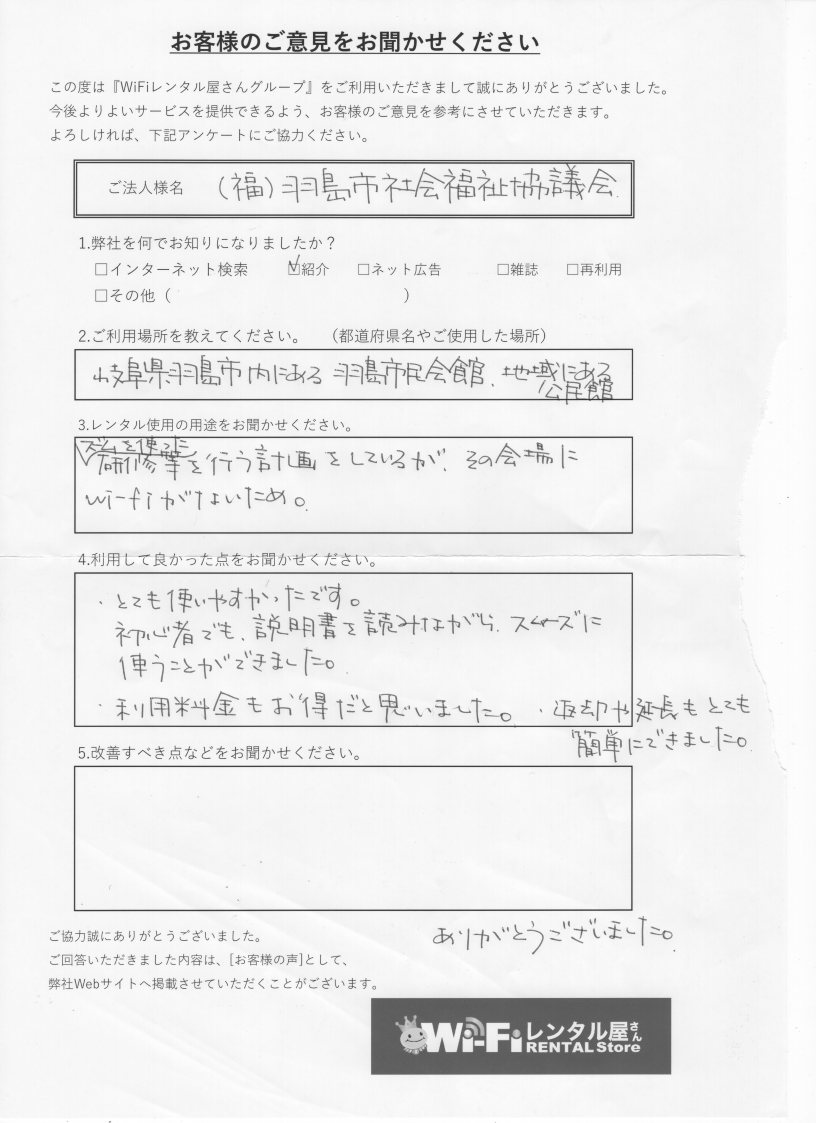 お客様のご意見をお聞かせください
この度は『WiFiレンタル屋さんグループ』をご利用いただきまして誠にありがとうございました。
今後よりよいサービスを提供できるよう、お客様のご意見を参考にさせていただきます。
よろしければ、下記アンケートにご協力ください。
ご法人様名 (福)羽島市社会福祉協議会
1.弊社を何でお知りになりましたか？
□インターネット検索 ☑紹介 □ネット広告 □雑誌 □再利用
□その他（ ）
2.ご利用場所を教えてください。 （都道府県名やご使用した場所）
岐阜県羽島市内にある 羽島市民会館、地域にある
公民館
3.レンタル使用の用途をお聞かせください。
ズームを使った
研修等を行う計画をしているが、その会場に
wi-fiがないため。
4.利用して良かった点をお聞かせください。
・とても使いやすかったです。
初心者でも、説明書を読みながら、スムーズに
使うことができました。
・利用料金もお得だと思いました。・返却や延長もとても
簡単にできました。
5.改善すべき点などをお聞かせください。
ありがとうございました。
ご協力誠にありがとうございました。
ご回答いただきました内容は、[お客様の声]として、
弊社Webサイトへ掲載させていただくことがございます。
Wi-Fiレンタル屋さん
RENTAL Store